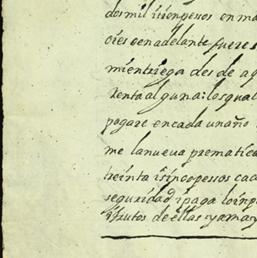 dos mil iiionpesos en ma
oies oen adelante fuere s
mientriega des de ag
Renta alguna: los qual
pagare en cada un año
me la nueva prematica
treinta isincopessos cad
seguridad ipaga loinp
ifrutos de ellas yamay